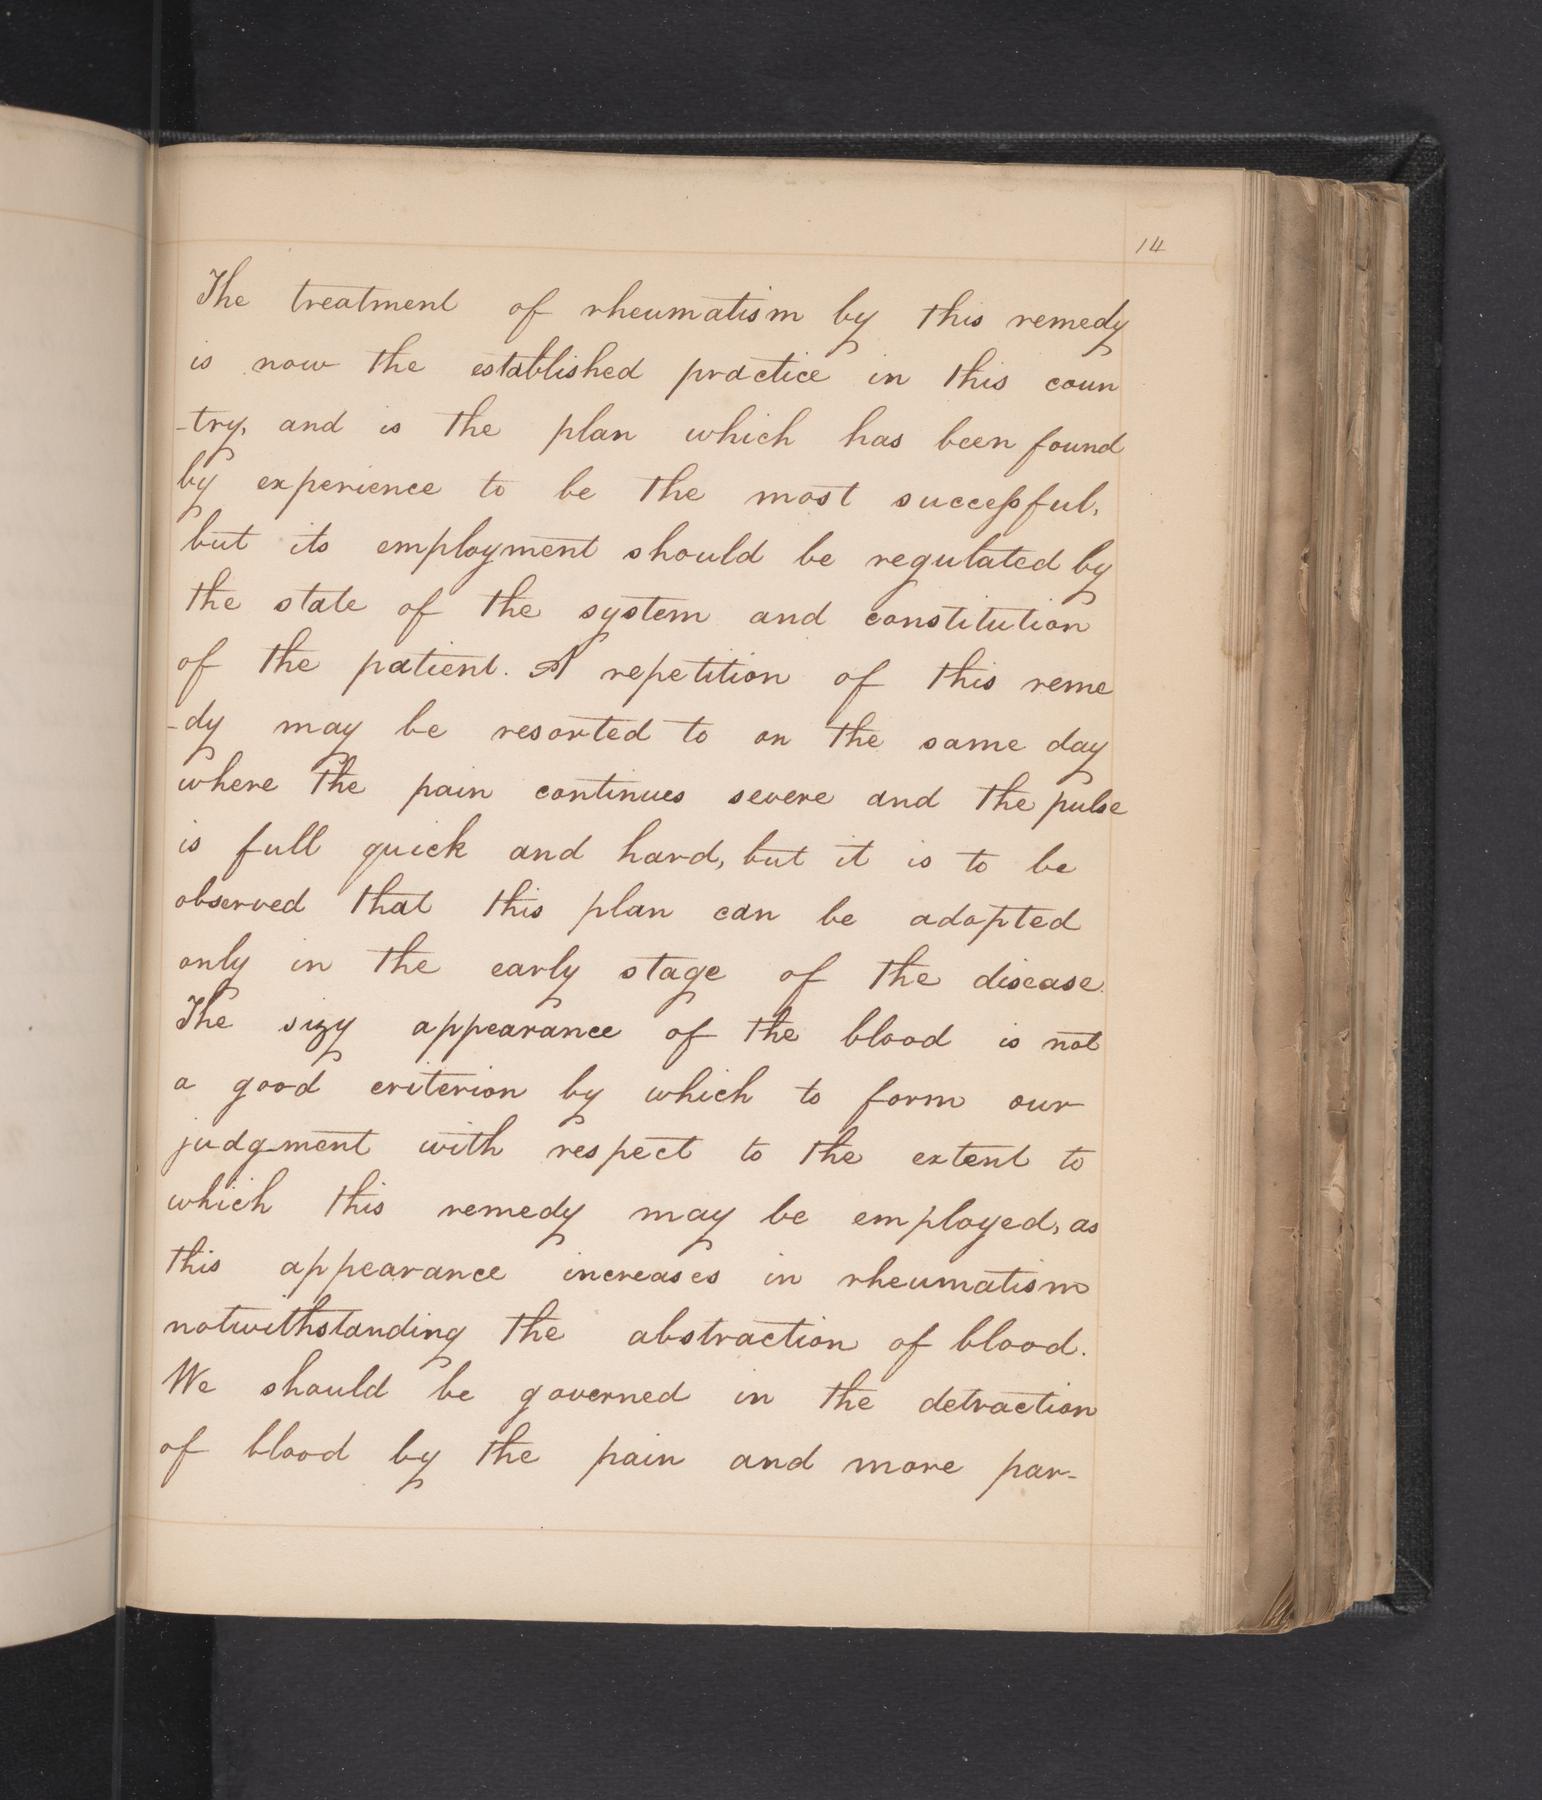 14
The treatment of rheumatism by this remedy
is now the established practice in this coun
-try, and is the plan which has been found
by experience to be the most successful,
but its employment should be regulated by
the state of the system and constitution
of the patient. A repetition of this reme
-dy may be resorted to on the same day
where the pain continues severe and the pulse
is full quick and hard, but it is to be
observed that this plan can be adopted
only in the early stage of the disease.
The sizy appearance of the blood is not
a good criterion by which to form our
judgment with respect to the extent to
which this remedy may be employed, as
this appearance increases in rheumatism
notwithstanding the abstraction of blood.
We should be governed in the detraction
of blood by the pain and more par-